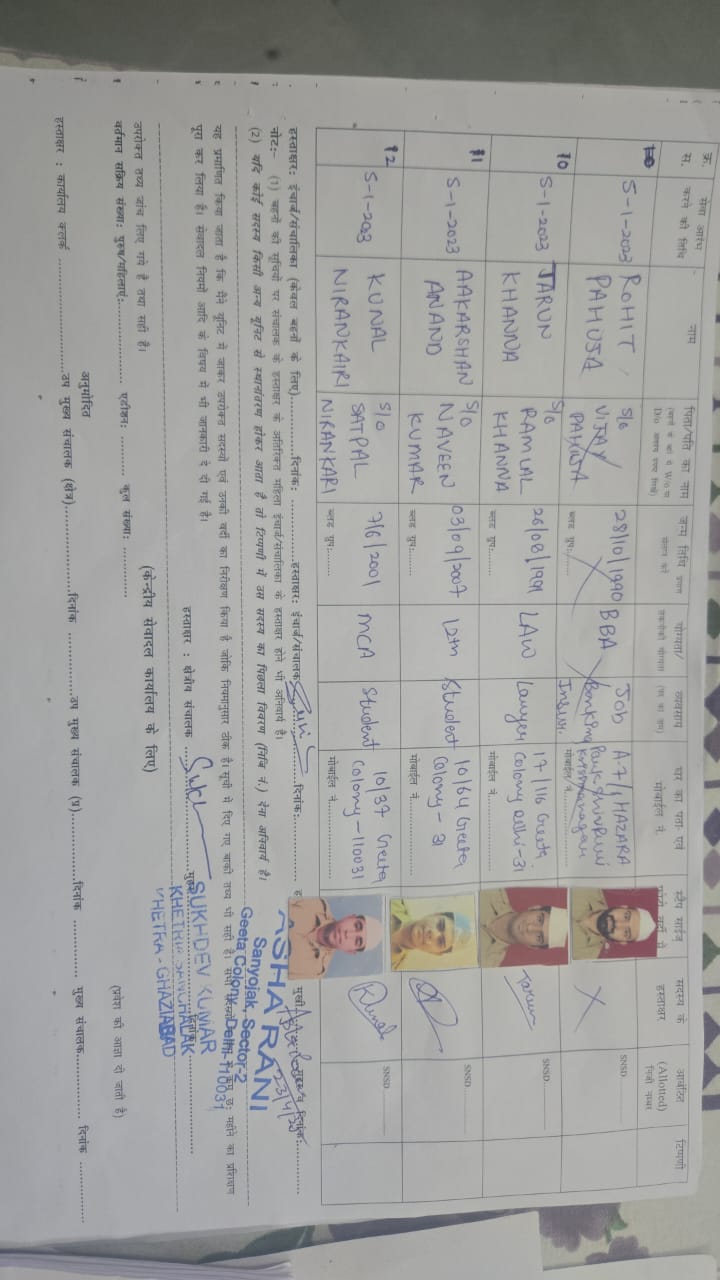 क्र. स.
सेवा आरंभ करने की तिथि
नाम
पिता/पति का नाम
जन्म तिथि
योग्यता/
व्यवसाय
घर का पता एवं मोबाईल नं.
स्टैप साईज
सदस्य के हस्ताक्षर
आबंटित (Allotted) निजी नम्बर
टिप्पणी
5-1-2023
ROHIT PAHUJA
S/o VIJAY PAHUJA
28/10/1990
ब्लड ग्रुप:.......
BBA
Job Banking
A-7/1 HAZARA Park Shivpuri Krishnanagar
मोबाईल नं.
X
SNSD
10
5-1-2023
TARUN KHANNA
S/o RAMLAL KHANNA
26/08/1991
ब्लड ग्रुप:.......
LAW
Lawyer
17/116 Geeta Colony Delhi-31
मोबाईल नं.
Tarun
SNSD
11
5-1-2023
AAKARSHAN ANAND
S/o NAVEEN KUMAR
03/09/2007
ब्लड ग्रुप:.......
12th
Student
10/64 Geeta Colony - 31
मोबाईल नं.
SNSD
12
5-1-2023
KUNAL NIRANKAIRI
S/o SATPAL NIRANKARI
7/6/2001
ब्लड ग्रुप:.......
MCA
Student
10/37 Geeta Colony-110031
मोबाईल नं.
Kunal
SNSD
हस्ताक्षर: इंचार्ज/संचालिका (केवल बहनों के लिए)..............दिनांक: ..............हस्ताक्षर: इंचार्ज/संचालक..............दिनांक:..............
नोट:- (1) बहनों की सूचियों पर संचालक के हस्ताक्षर के अतिरिक्त महिला इंचार्ज/संचालिका के हस्ताक्षर होने भी अनिवार्य है।
(2) यदि कोई सदस्य किसी अन्य यूनिट से स्थानांतरण होकर आता है तो टिप्पणी में उस सदस्य का पिछला विवरण (निजि नं.) देना अनिवार्य है।
ASHA RANI
Sanyojak, Sector-2
Geeta Colony, Delhi-110031
यह प्रमाणित किया जाता है कि मैंने यूनिट में जाकर उपरोक्त सदस्यों एवं उनकी वर्दी का निरीक्षण किया है जोकि नियमानुसार ठीक है। सूची में दिए गए बाकी तथ्य भी सही है। छः महीने का प्रशिक्षण
पूरा कर लिया है। सेवादल नियमों आदि के विषय में भी जानकारी दे दी गई है।
हस्ताक्षर : क्षेत्रीय संचालक
SUKHDEV KUMAR
KHETRIA SANCHALAK
KHETRA - GHAZIABAD
(केन्द्रीय सेवादल कार्यालय के लिए)
उपरोक्त तथ्य जांच लिए गये है तथा सही है।
वर्तमान सक्रिय संख्या: पुरुष/महिलाएं:.............. एडीशन: .......... कुल संख्या: ............
(प्रवेश की आज्ञा दी जाती है)
अनुमोदित
हस्ताक्षर : कार्यालय क्लर्क ..................उप मुख्य संचालक (क्षेत्र)..............दिनांक ..............उप मुख्य संचालक (प्र)..............दिनांक .............. मुख्य संचालक.............. दिनांक ..............